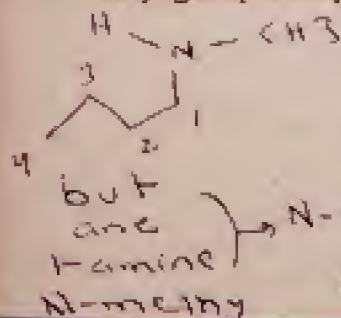 H N CH3
3
1
2
4
but
ane
1-amine → N-
N-methy